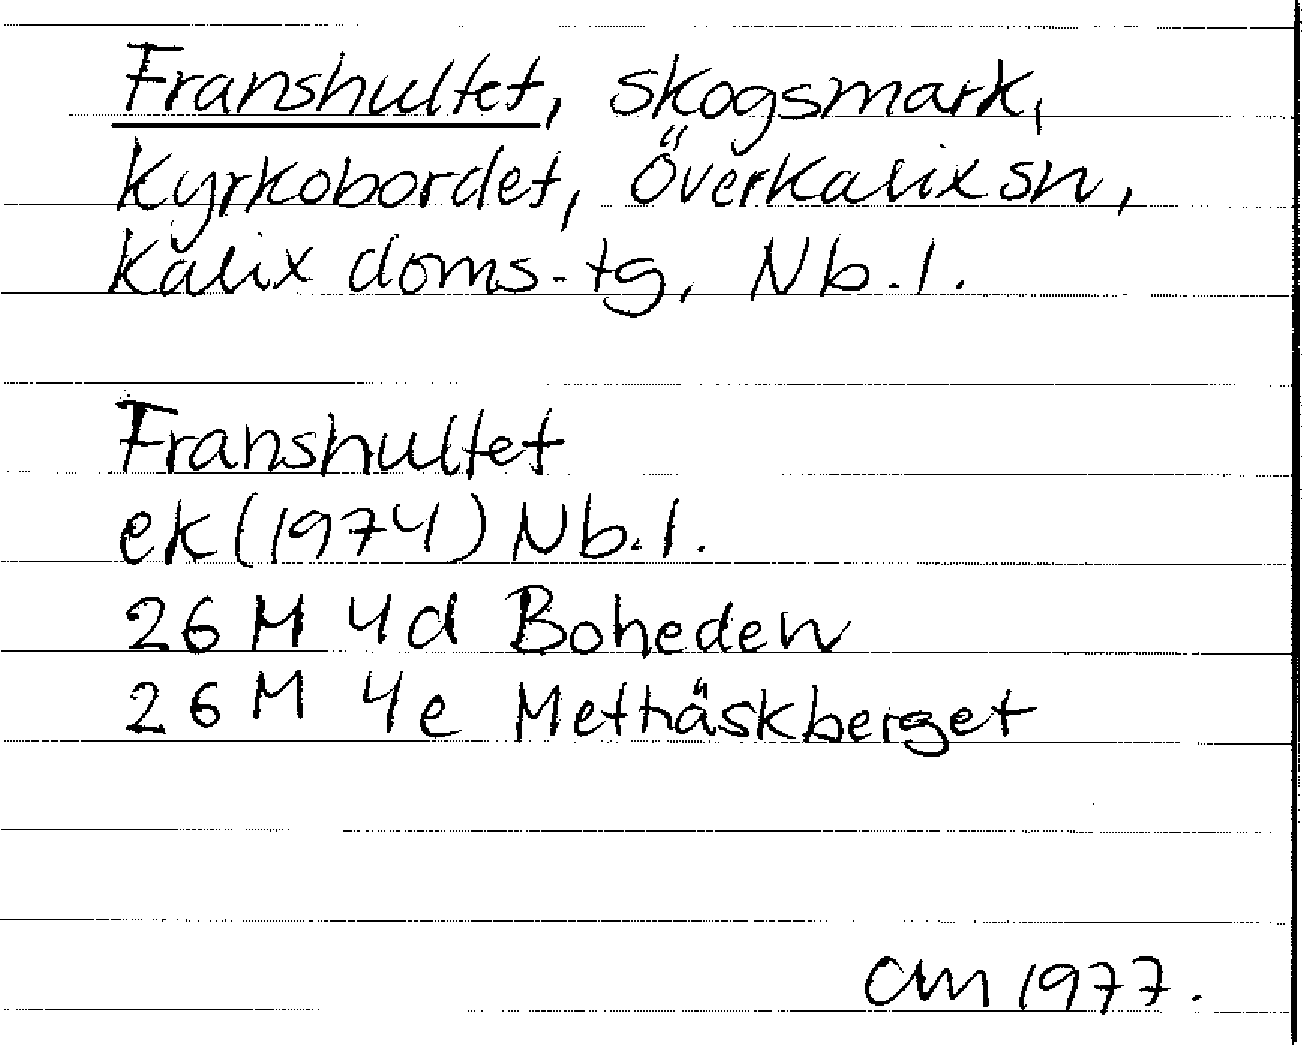 Franshultet, skogsmark,
Kyrkobordet, Överkalix sn,
Kalix doms.tg, Nb.l.
Franshultet
ek (1974) Nb.l.
26 M 4d Boheden
26 M 4e Methäskberget
1977.